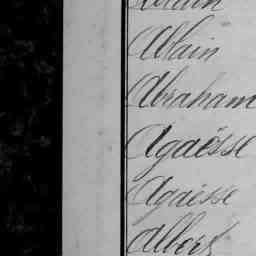 Ablain
Abraham
Agaësse
Agaisse
Albert